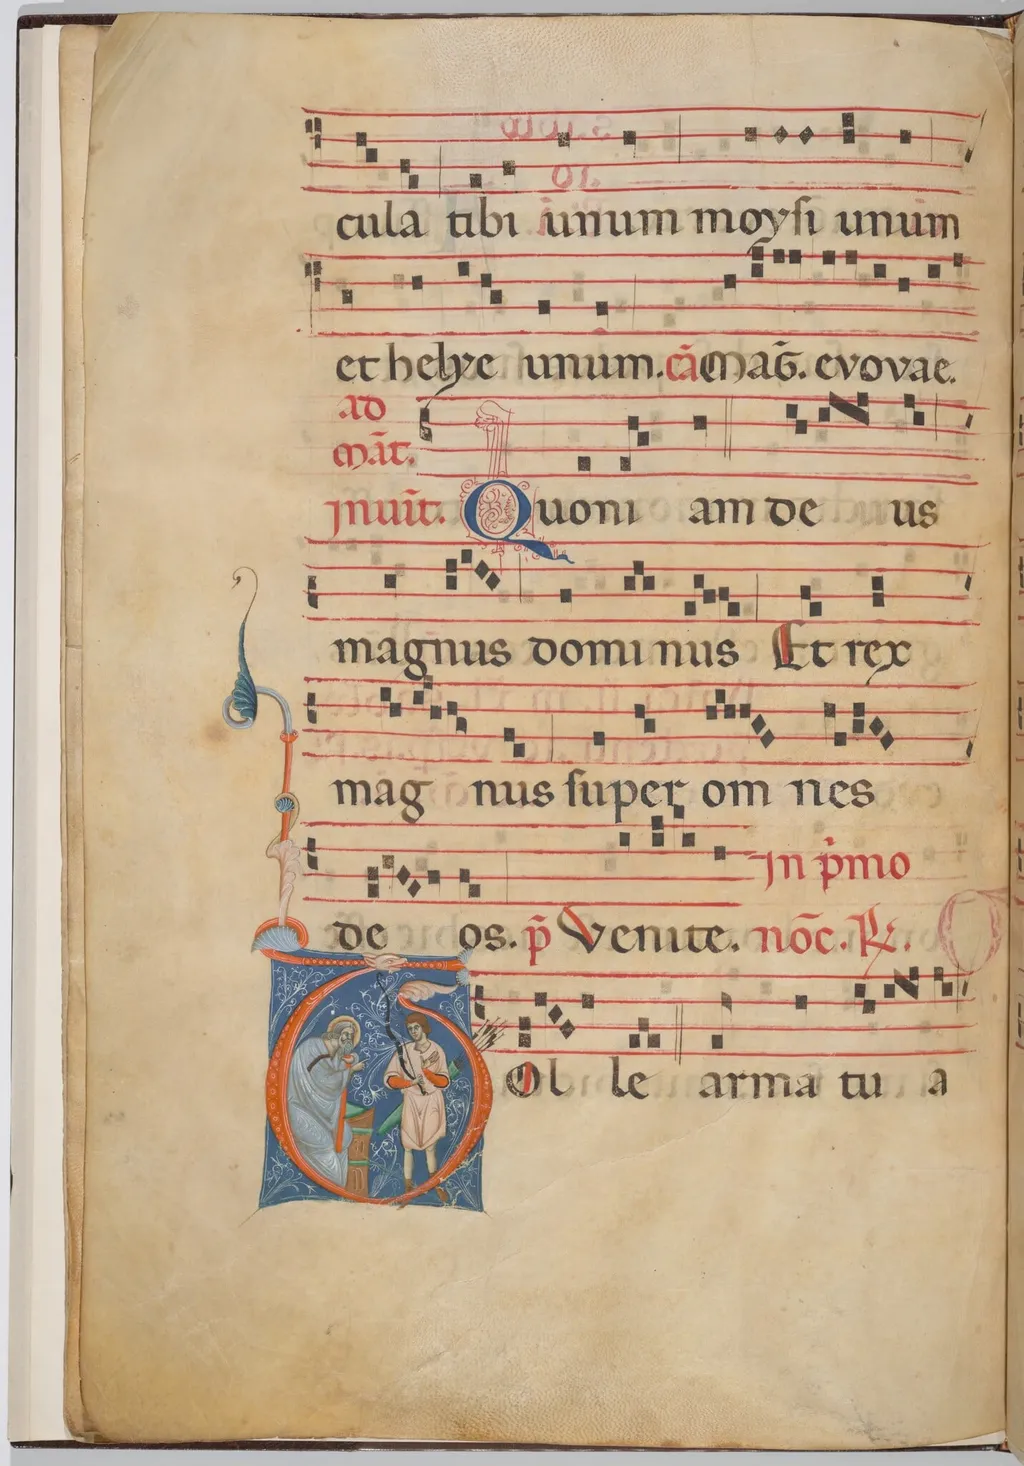 cula tibi unum moysi unum
et helye unum. cā Mag̃. evovae.
ad
māt.
Inuit̃. Quoni am de us
magnus domi nus Et rex
mag nus super om nes
In p̃mo
de os. p̃ Venite. noc̄. ℟.
Tol le arma tu a